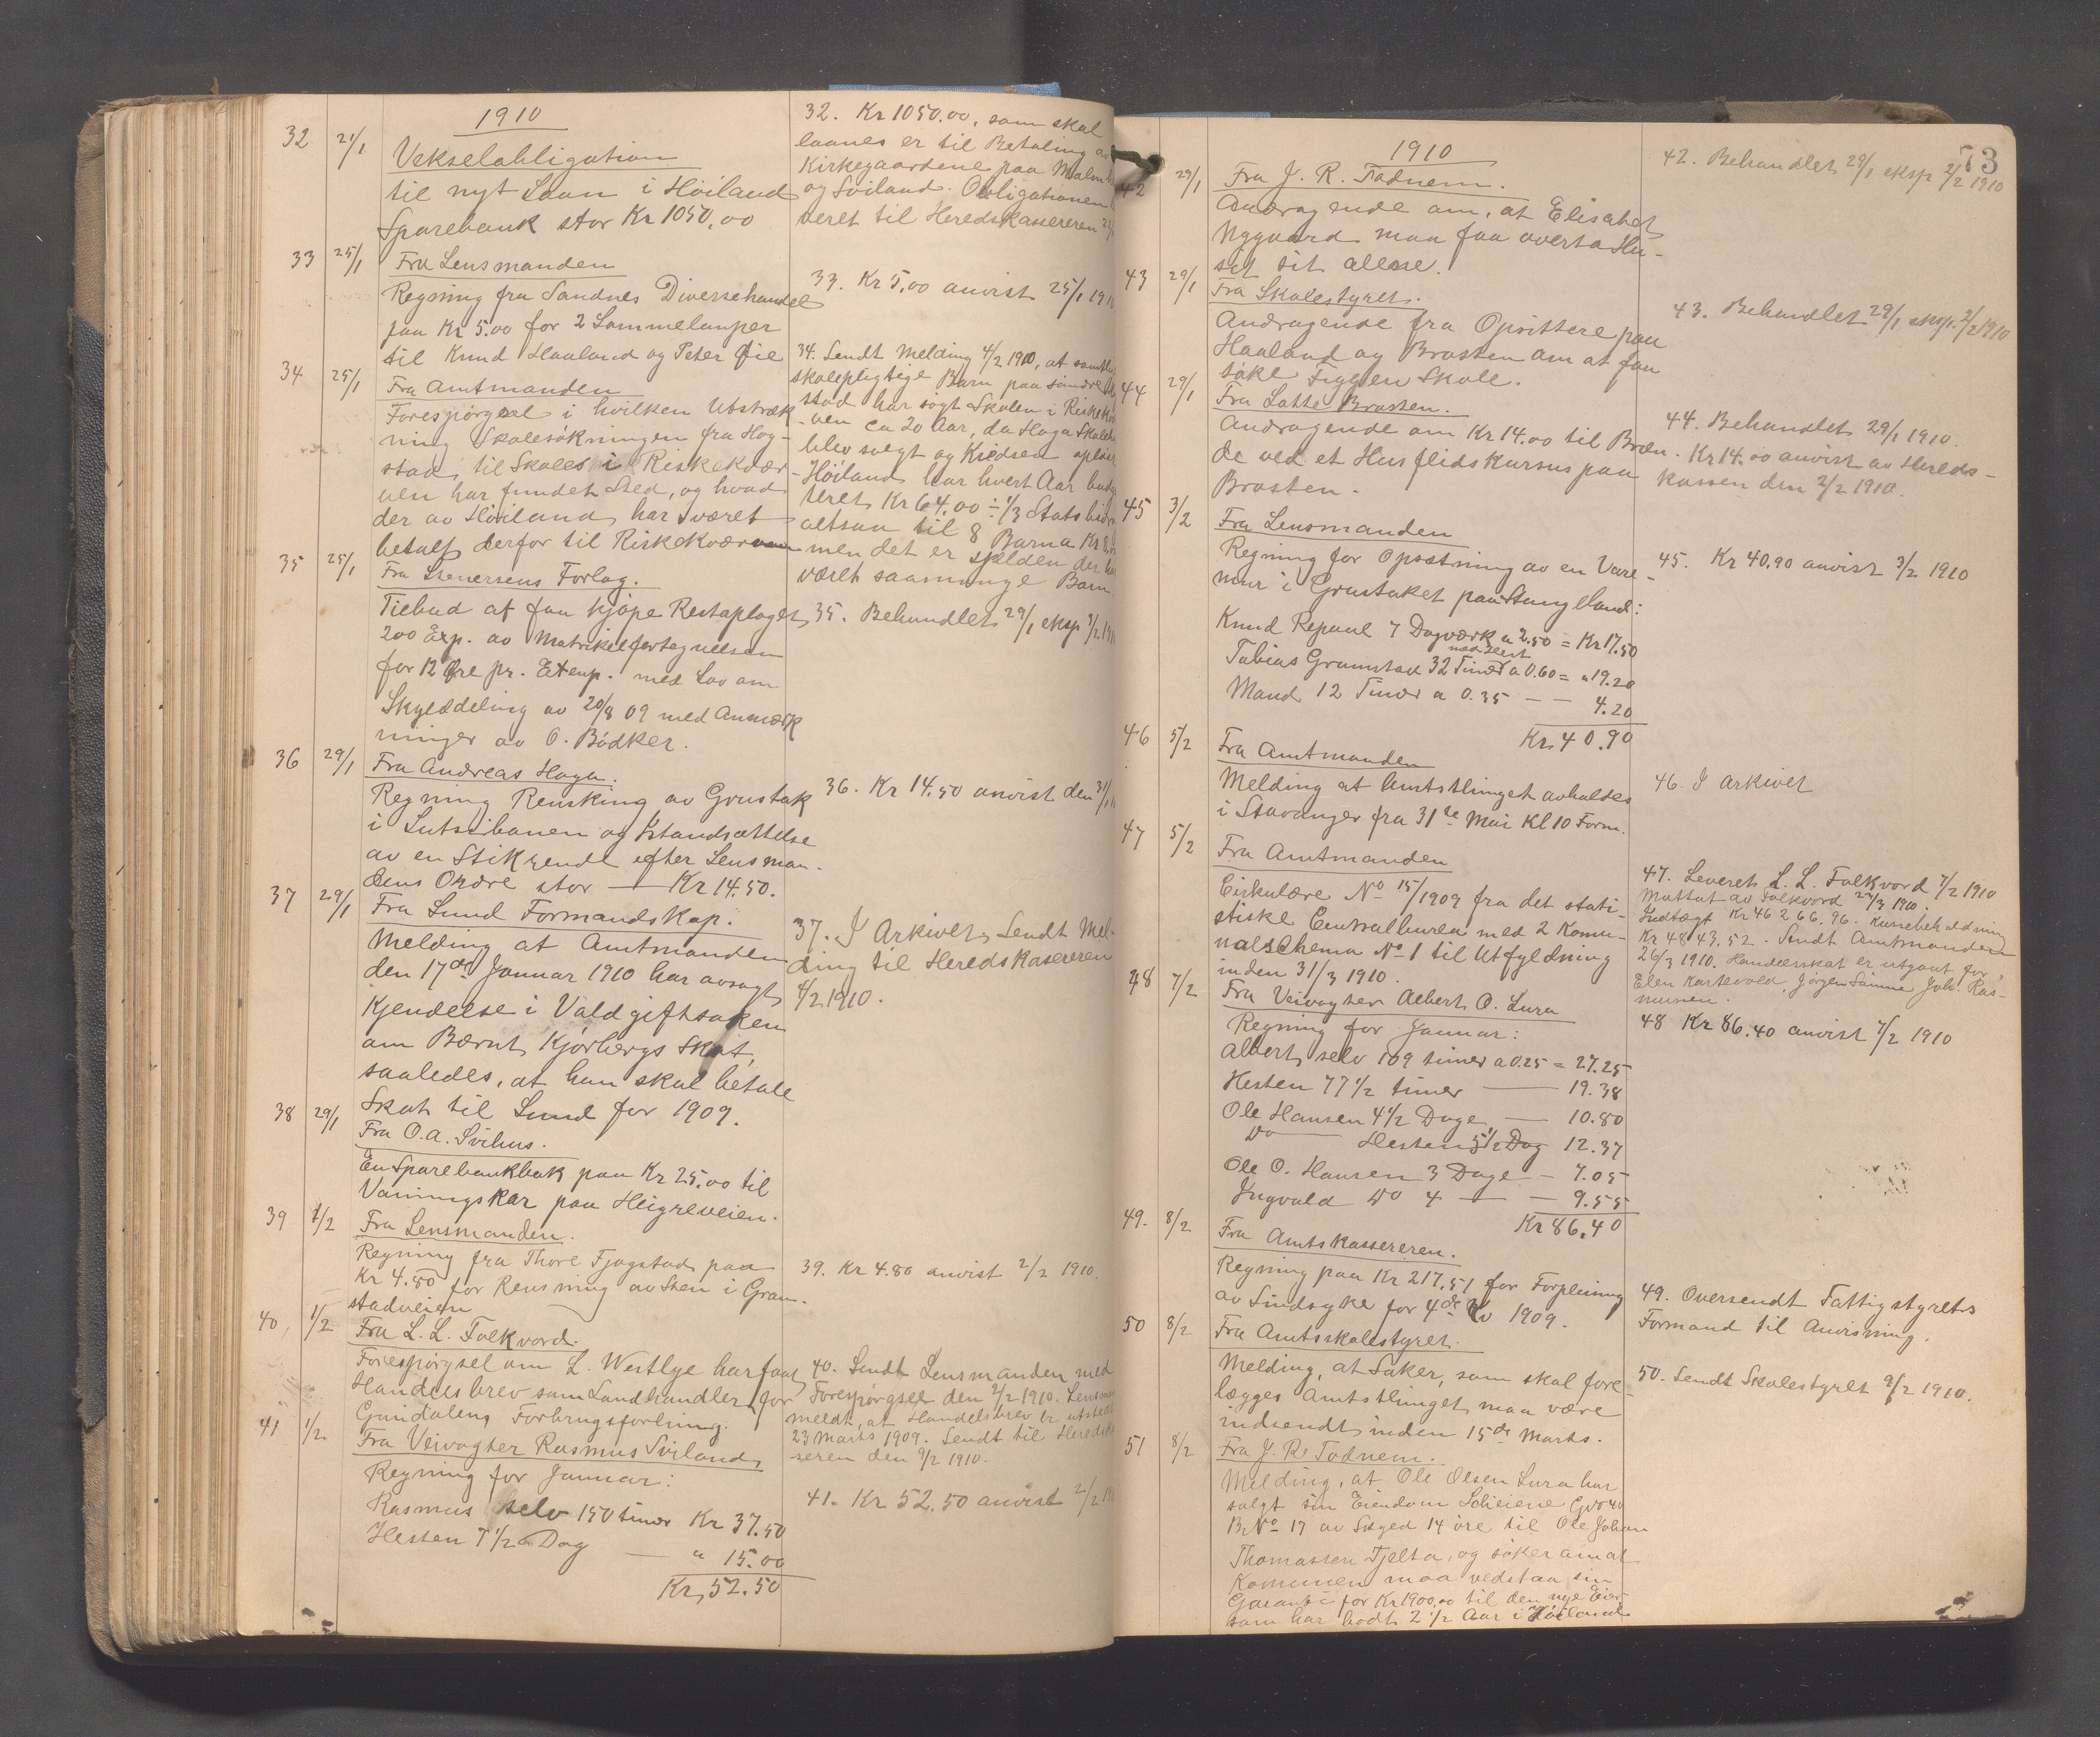 1910
32 21/1 Vekselobligation
til nyt Laan i Höiland
Sparebank stor Kr 1050,00
33 25/1 Fra Lensmanden
Regning fra Sandnes Diversehandel
paa Kr 5.00 for 2 Lommelamper
til Knud Haaland og Peter
34 25/1 Fra Amtmanden
Forespörgsel i hvilken Utstræk-
ning Skolesökningen fra Hog-
stad til Skoles i Riskekvær
ven har fundet Sted, og hvad
der av Höiland har været
betalt derfor til Riskekværven
35 25/1 Fra Stenersens Forlag.
Tilbud at faa kjöpe Restoplaget
200 Exp. av Matrikelfortegnelsen
for 12 Öre pr. Exemp. med Lov om
Skylddeling av 20/8 09 med Anmærk
ninger av O. Bödker.
36 29/1 Fra Andreas Haga.
Regning Rensking av Grustak
i Lutsibanen og Istandsættelse
av en Stikrende efter Lensman-
dens Ordre stor — Kr 14.50.
37 29/1 Fra Lund Formandskap.
Melding at Amtmanden
den 17de Januar 1910 har avsagt
Kjendelse i Voldgiftsaken
om Bernt Kjörbergs Skat,
saaledes, at han skal betale
Skat til Lund for 1909.
38 29/1 Fra O. A. Svihus.
En Sparebankbok paa Kr 25.00 til
Vanningskar paa Heigreveien.
39 1/2 Fra Lensmanden.
Regning fra Thore Fjogstad paa
Kr 4.80 for Rensning av Sten i Gram-
stadveien
40, 1/2 Fra L. L. Folkvord.
Forespörgsel om L. Westlye har faat
Handelsbrev som Landhandler for
Gimdalens Forbrugsforening.
41 1/2 Fra Veivogter Rasmus Sviland
Regning for Januar:
Rasmus selv 150 timer Kr 37.50
Hesten 7 1/2 Dag — " 15.00
Kr 52.50
32. Kr 1050.00, som skal
laanes er til Betaling av
Kirkegaardene paa
og Sviland. Obligationen
veret til Heredskassereren
33. Kr 5.00 anvist 25/1
34. Sendt Melding 4/2 1910, at
skolepligtige Barn paa söndre
stad har sögt Skolen i
ven ca 20 Aar, da Hoga
blev solgt og Kredsen
Höiland har hvert Aar
teret Kr 64.00 ÷ 1/3
altsaa til 8 Barn a Kr
men det er sjelden der
været saamange Barn
35. Behandlet 29/1 eksp 2/2
36. Kr 14.50 anvist den 31/1
37. I Arkivet, Sendt Mel-
ding til Heredskasereren
4/2 1910.
39. Kr 4.80 anvist 2/2 1910.
40. Sendt Lensmanden med
Forespörgsel den 2/2 1910. Lensm
meldt, at Handelsbrev er utstedt
23 Marts 1909. Sendt til
seren den 9/2 1910.
41. Kr 52.50 anvist 2/2
73
1910
42 29/1 Fra J. R. Todnem.
Andragende om, at Elisabet
Nygaard maa faa overta Hu-
set sit alene.
43 29/1 Fra Skolestyret.
Andragende fra Opsittere paa
Haaland og Brosten om at faa
söke Figgen Skole.
44 29/1 Fra Lotte Brosten.
Andragende om Kr 14.00 til Bræn-
de ved et Husflidskursus paa
Brosten.
45 3/2 Fra Lensmanden
Regning for Opsætning av en Vare-
mur i Grustaket paa Stangeland:
Knud Repaal 7 Dagværk a 2.50 = Kr 17.50
med Hest
Tobias Gramstad 32 Timer a 0.60 = " 19.20
Mand 12 Timer a 0.35 — — 4.20
Kr 40.90
46 5/2 Fra Amtmanden
Melding at Amtstinget avholdes
i Stavanger fra 31te Mai Kl 10 Form.
47 5/2 Fra Amtmanden
Cirkulære No 15/1909 fra det stati-
stiske Centralburea med 2 Komu-
nalschema No 1 til Utfyldning
inden 31/3 1910.
48 7/2 Fra Veivogter Albert O. Lura
Regning for Januar:
Albert selv 109 timer a 0.25 = 27.25
Hesten 77 1/2 timer — 19.38
Ole Hansen 4 1/2 Dage — 10.80
Do — Hesten 5 1/2 Dag 12.37
Ole O. Hansen 3 Dage — 7.05
Ingvald Do 4 — — 9.55
Kr 86.40
49. 8/2 Fra Amtskassereren.
Regning paa Kr 217,51 for Forpleining
av Sindsyke for 4de Kv 1909.
50 8/2 Fra Amtsskolestyret.
Melding, at Saker, som skal fore-
lægges Amtstinget, maa være
indsendt inden 15de Marts.
51 8/2 Fra J. R. Todnem.
Melding, at Ole Olsen Lura har
solgt sin Eiendom Scheiene Gno 40
B. No 17 av Skyld 14 öre til Ole Johan
Thomassen Tjelta, og söker om at
Komunen maa vedstaa sin
Garanti for Kr 1900,00 til den nye Eier,
som har bodt 2 1/2 Aar i Höiland
42. Behandlet 29/1 eksp 2/2 1910
43. Behandlet 29/1 eksp. 2/2 1910
44. Behandlet 29/1 1910.
Kr 14.00 anvist av Hereds-
kassen den 2/2 1910.
45. Kr 40.90 anvist 3/2 1910
46. I Arkivet
47. Leveret L. L. Folkvord 7/2 1910
Mottat av Folkvord 24/3 1910.
Indtægt Kr 46266,96. Kassebeholdning
Kr 4843,52. Sendt Amtmanden
26/3 1910. Handelsskat er utgaat for
Elen Kartevold, Jörgen Sömme Joh. Ras-
mussen.
48 Kr 86.40 anvist 7/2 1910
49. Oversendt Fattigstyrets
Formand til Anvisning.
50. Sendt Skolestyret 9/2 1910.